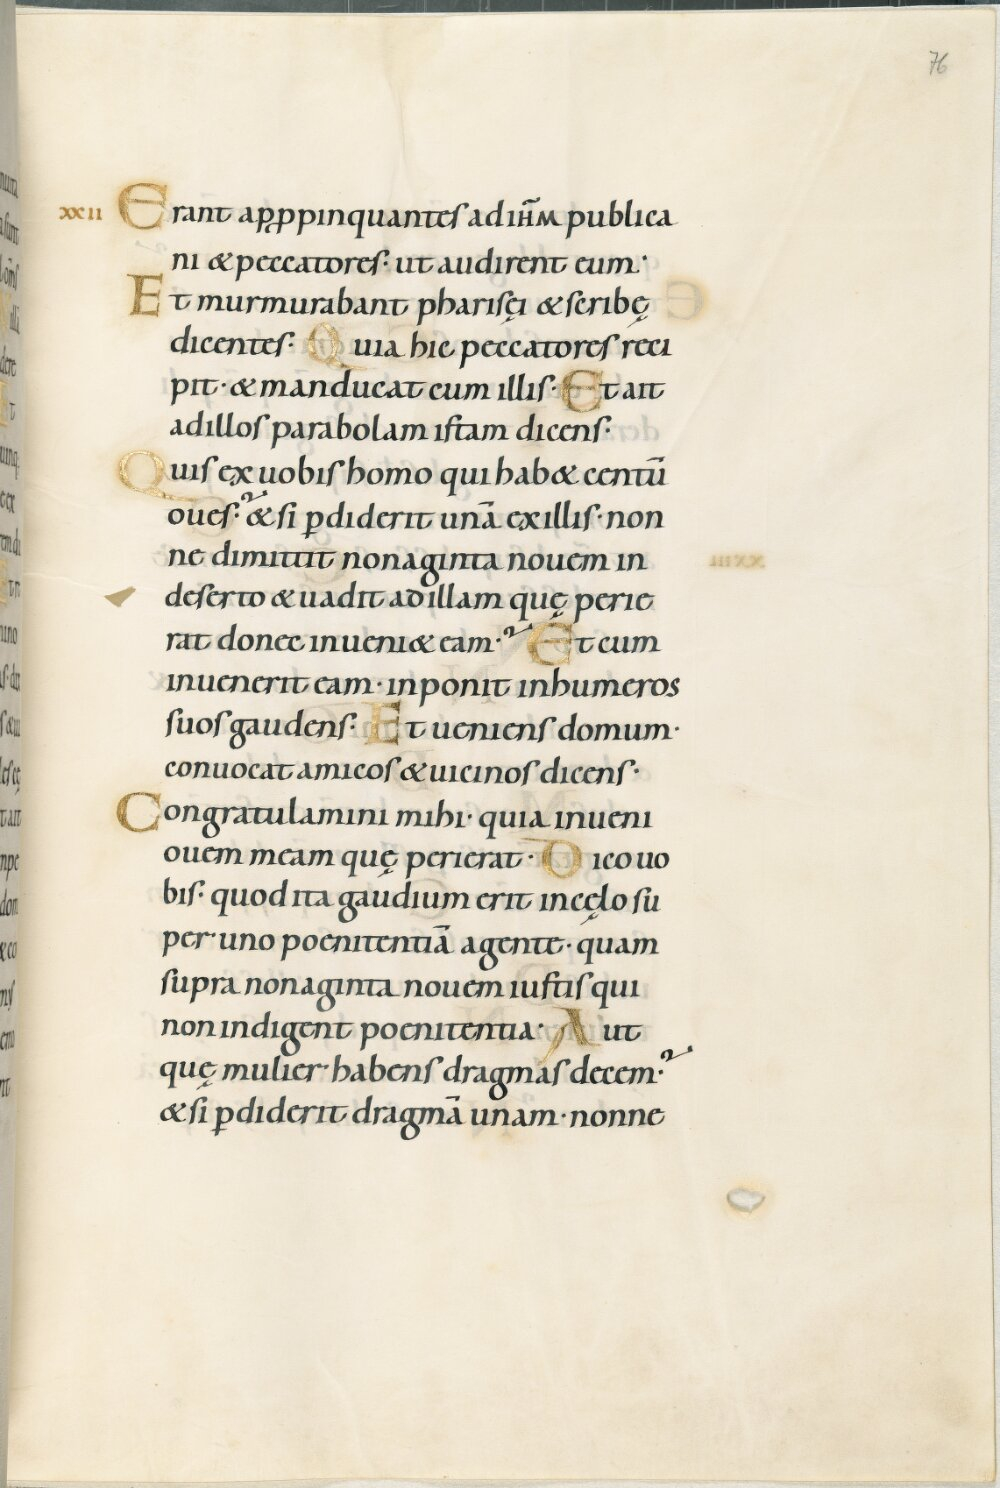 76
xxii Erant appropinquantes ad ihm publica
ni & peccatores· ut audirent eum·
Et murmurabant pharisęi & scribę
dicentes· Quia hic peccatores reci
pit· & manducat cum illis· Et ait
ad illos parabolam istam dicens·
Quis ex uobis homo qui hab& centū
oues· & si ꝑdiderit unā ex illis· non
ne dimittit nonaginta nouem in
deserto & uadit ad illam quę perie
rat donec inueni& eam· Et cum
inuenerit eam· inponit in humeros
suos gaudens· Et ueniens domum·
conuocat amicos & uicinos dicens·
Congratulamini mihi· quia inueni
ouem meam quę perierat· Dico uo
bis· quod ita gaudium erit in cęlo su
per uno poenitentiā agente· quam
supra nonaginta nouem iustis qui
non indigent poenitentia· Aut
quę mulier habens dragmas decem·
& si ꝑdiderit dragmā unam· nonne